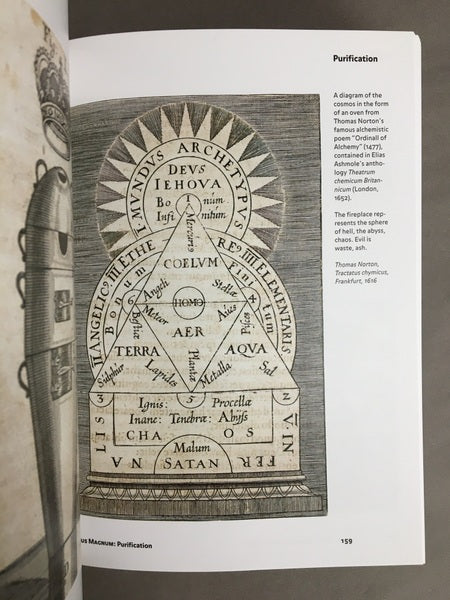 Purification
A diagram of the
cosmos in the form
of an oven from
Thomas Norton's
famous alchemistic
poem "Ordinall of
Alchemy" (1477),
contained in Elias
Ashmole's antho-
logy Theatrum
chemicum Britan-
nicum (London,
1652).
The fireplace rep-
resents the sphere
of hell, the abyss,
chaos. Evil is
waste, ash.
Thomas Norton,
Tractatus chymicus,
Frankfurt, 1616
I MVNDVS ARCHETYPVS
DEVS
IEHOVA
Bo I num.
Infi nitum.
Mercurius
II ANGELIC9 III ÆTHE
RE9 IIII ELEMENTARIS
Bonum
Finitum
COELVM
Angeli
Stellæ
6 HOMO 4
Meteor
Aves
Bestiæ
Pisces
AER
TERRA
AQVA
Sulphur
Lapides
Plantæ
Metalla
Sal
3 5 2
Ignis: Procellæ
Inane: Tenebræ: Abyss
CHA OS
V. IN FER NA LIS
Malum
SATAN
US MAGNUM: Purification
159